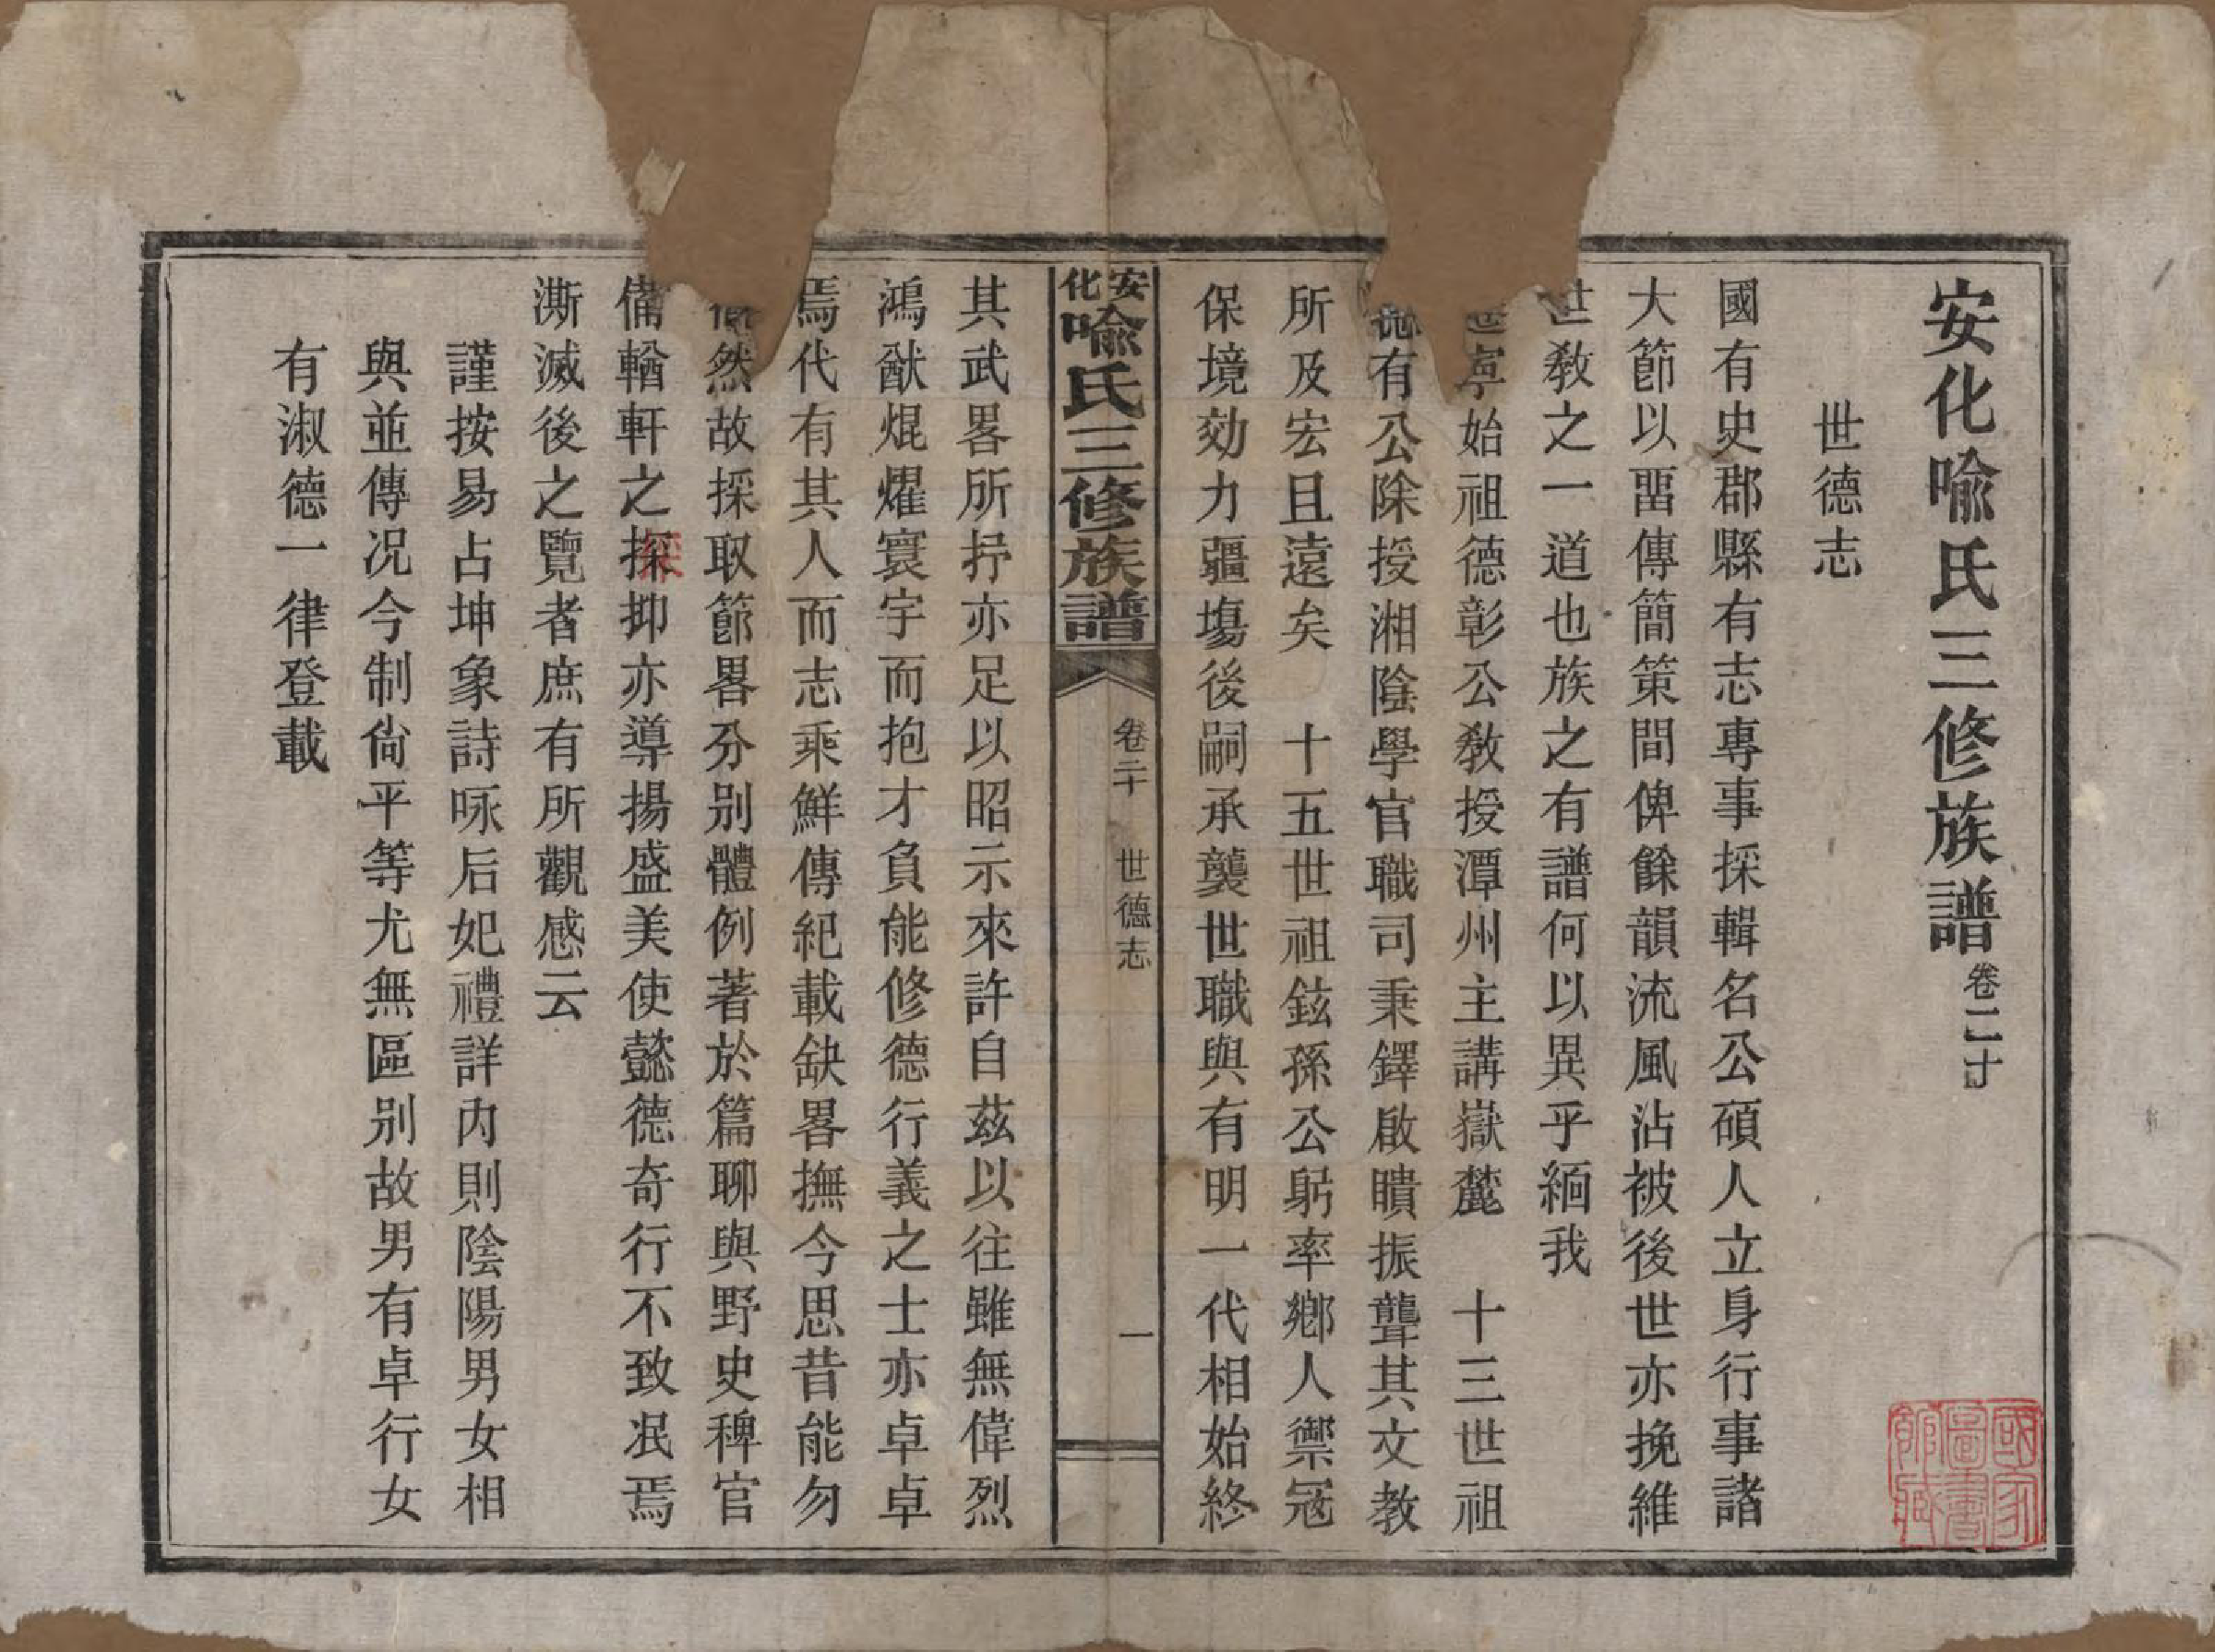 安化喻氏三修族譜卷二十
世德志
國有史郡縣有志專事採輯名公碩人立身行事諸
大節以畱傳簡策間俾餘韻流風沾被後世亦挽維
世教之一道也族之有譜何以異乎緬我
寧始祖德彰公教授潭州主講嶽麓 十三世祖
有公除授湘陰學官職司秉鐸啟瞶振聾其文教
所及宏且遠矣 十五世祖鉉孫公躬率鄉人禦冦
保境効力疆塲後嗣承襲世職與有明一代相始終
安化喻氏三修族譜 卷二十 世德志 一
其武畧所抒亦足以昭示來許自茲以往雖無偉烈
鴻猷焜燿寰宇而抱才負能修德行義之士亦卓卓
焉代有其人而志乘鮮傳紀載缺畧撫今思昔能勿
然故採取節畧分別體例著於篇聊與野史稗官
備輶軒之採抑亦導揚盛美使懿德奇行不致泯焉
澌滅後之覽者庶有所觀感云
謹按易占坤象詩咏后妃禮詳內則陰陽男女相
與並傳况今制尙平等尤無區別故男有卓行女
有淑德一律登載
國家圖書館藏